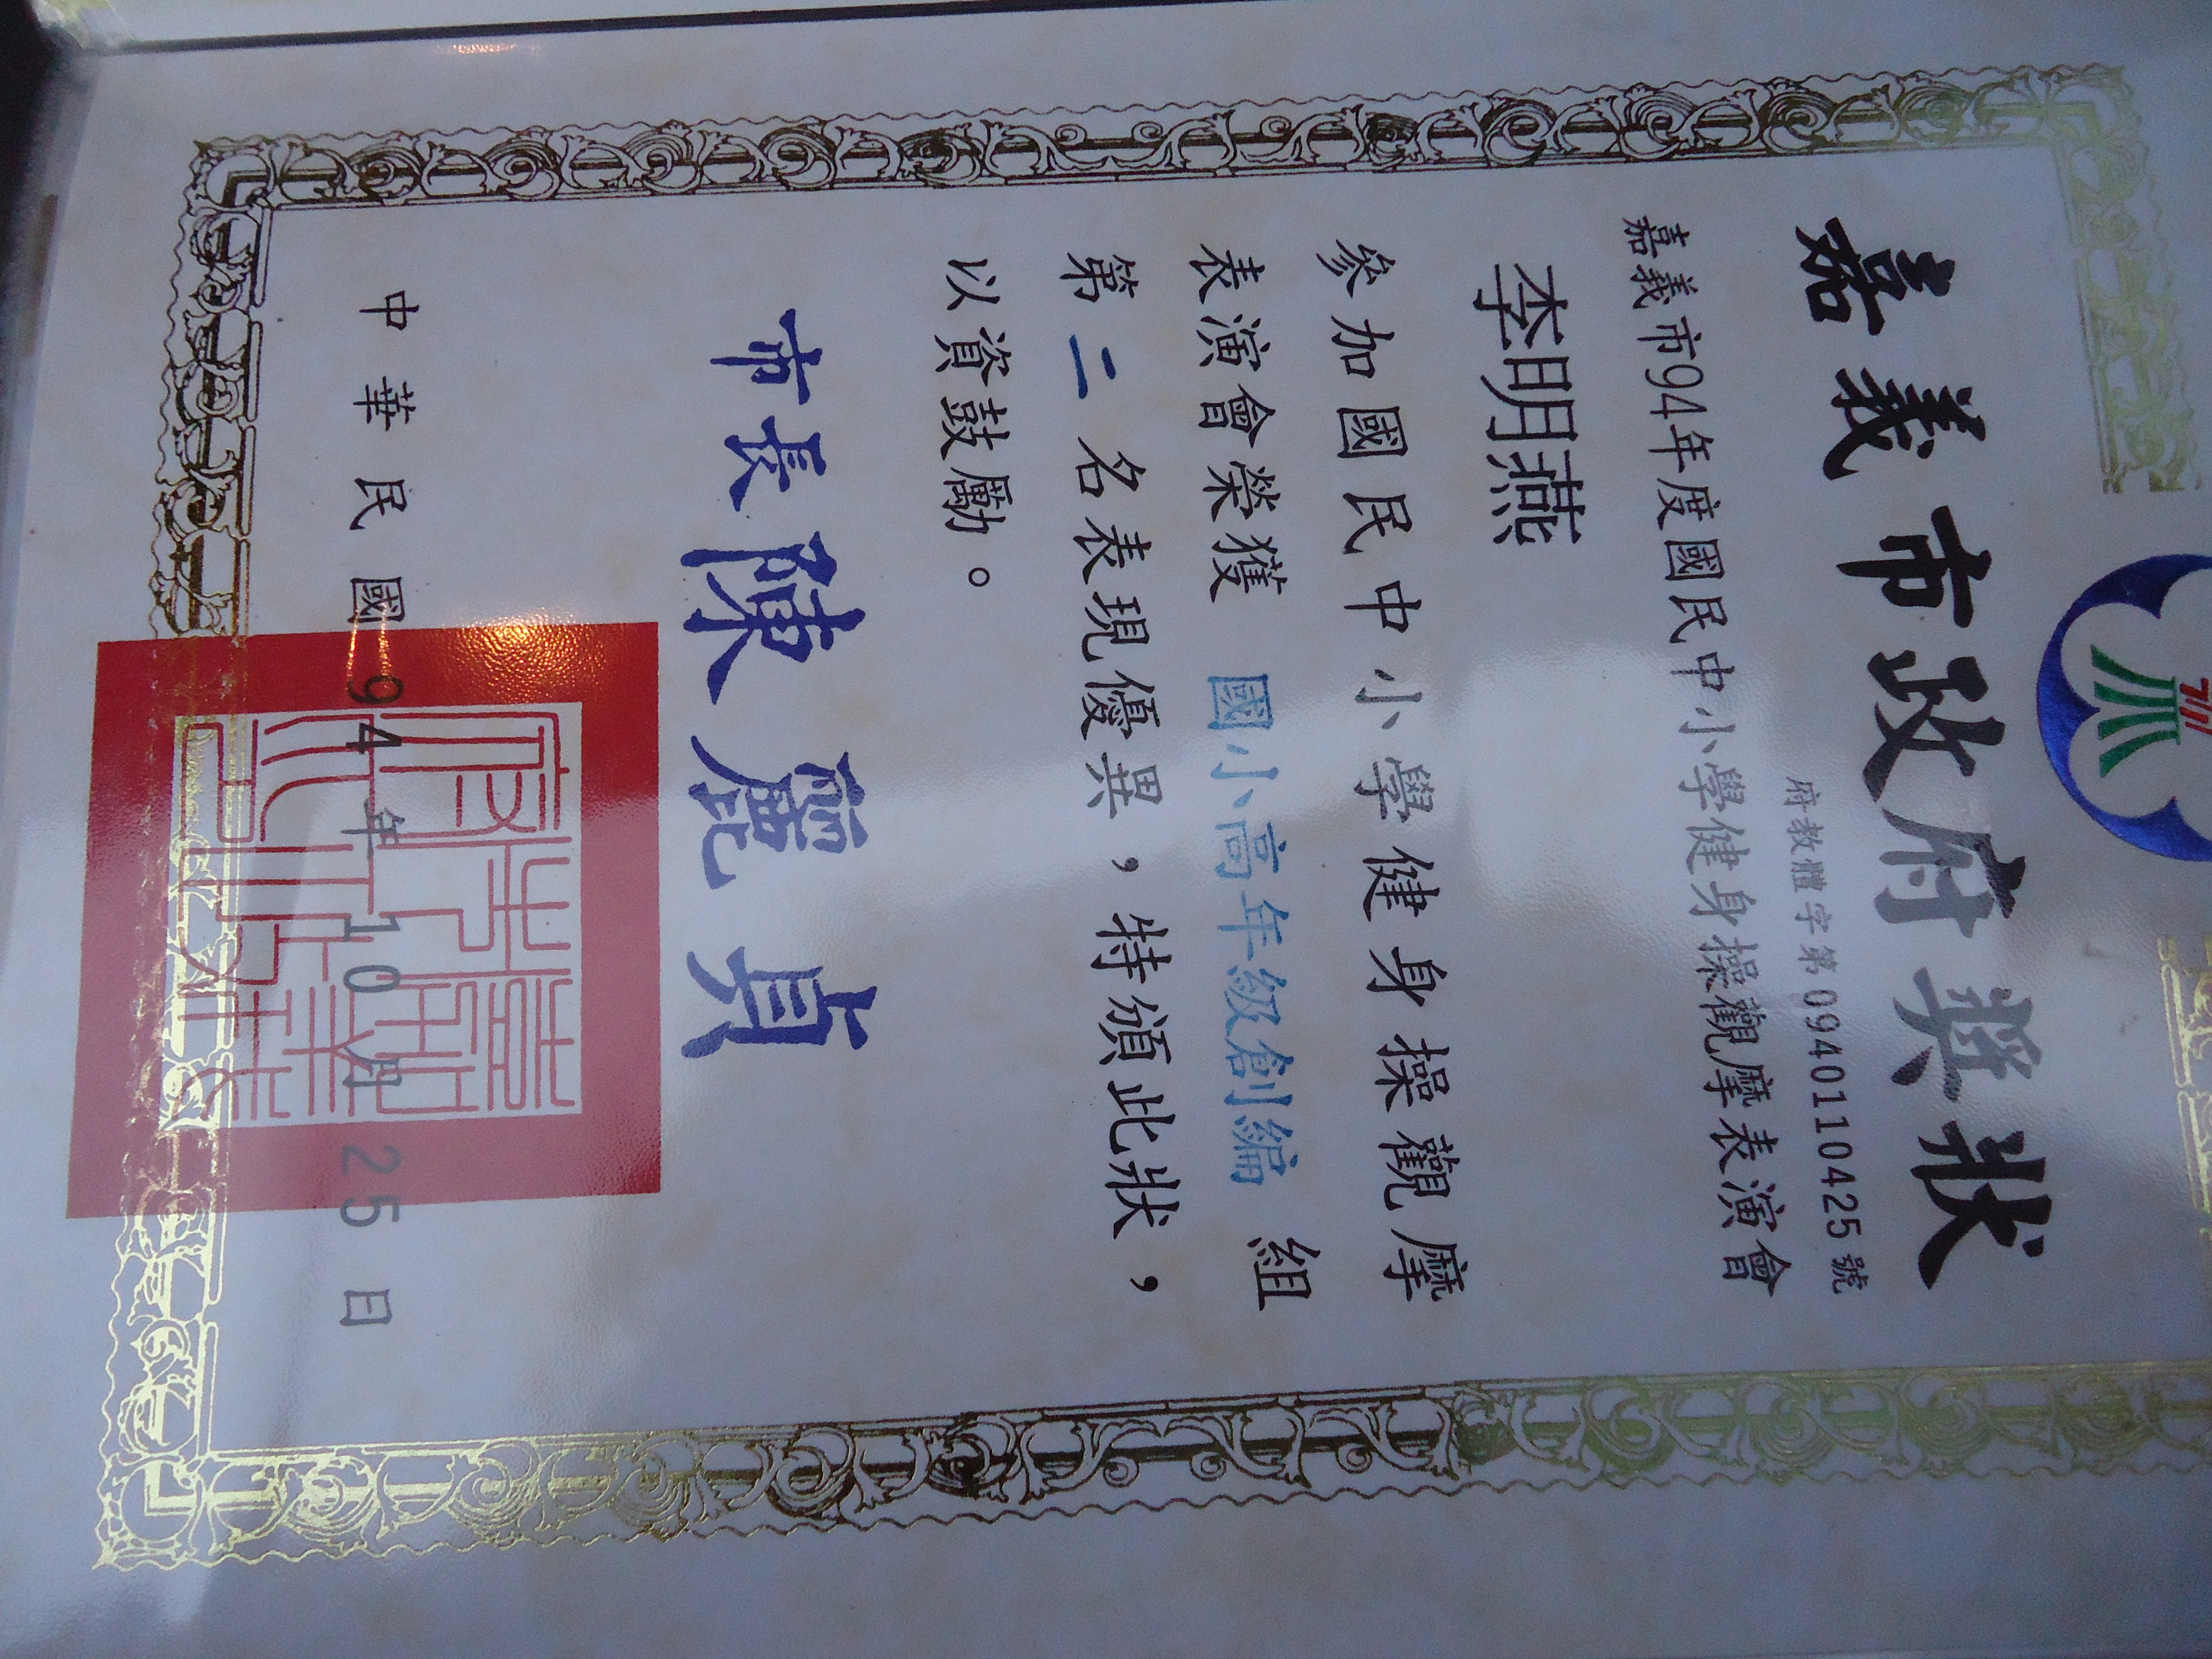 嘉義市政府獎狀
府教體字第09401104255號
嘉義市94年度國民中小學健身操觀摩表演會
李明燕
參加國民中小學健身操觀摩
表演會榮獲 國小高年級創編 組
第 二 名表現優異，特頒此狀，
以資鼓勵。
市長陳麗貞
中華民國94年10月25日